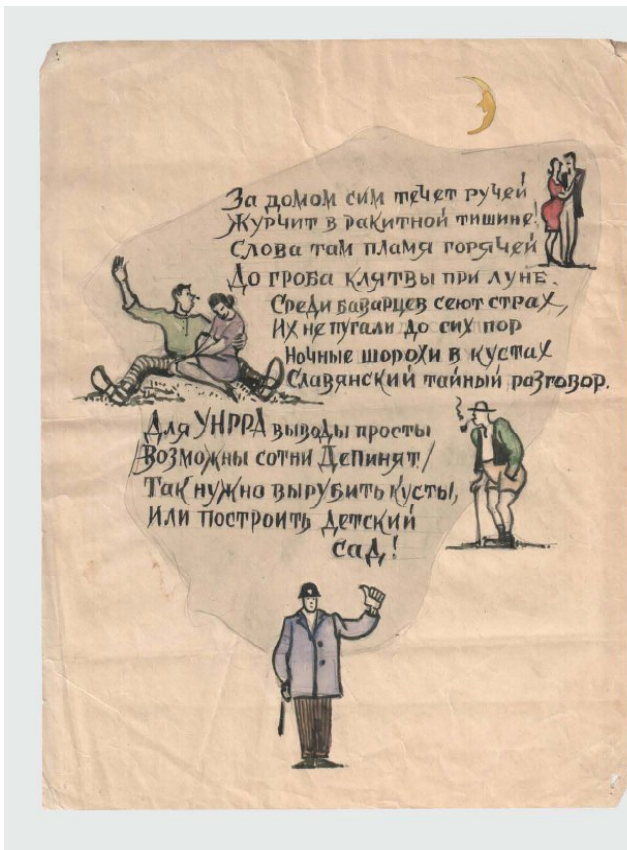 За домом сим течет ручей
Журчит в ракитной тишине!
Слова там пламя горячей
До гроба клятвы при луне.
Среди баварцев сеют страх,
Их не пугали до сих пор
Ночные шорохи в кустах
Славянский тайный разговор.
Для УНРРА выводы просты
Возможны сотни Депинят!
Так нужно вырубить кусты,
Или построить детский
сад!